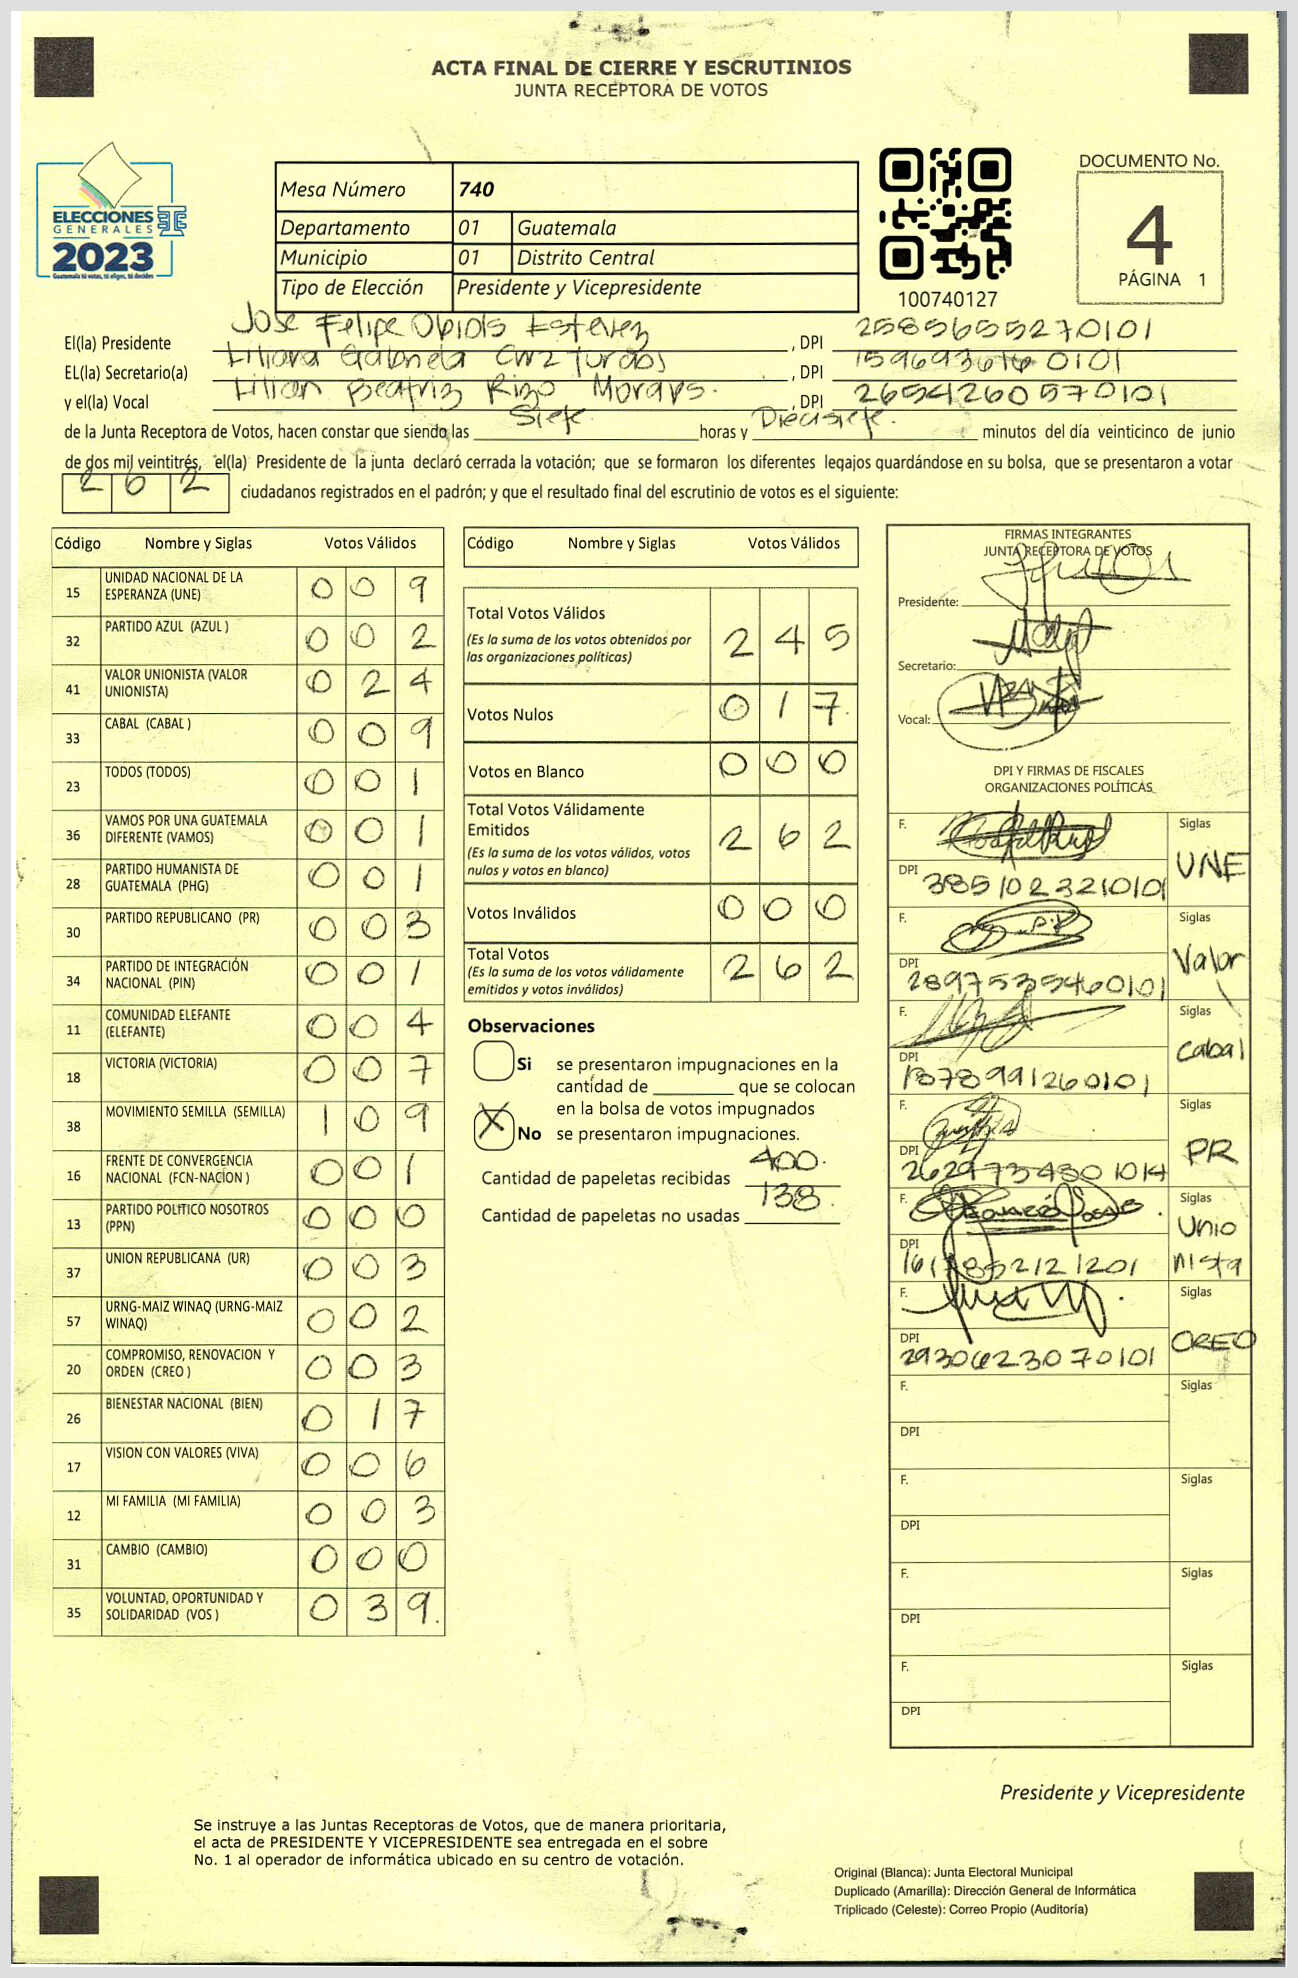 ACTA FINAL DE CIERRE Y ESCRUTINIOS
JUNTA RECEPTORA DE VOTOS
ELECCIONES
GENERALES
2023
Guatemala tú votas, tú eliges, tú decides
Mesa Número 740
Departamento 01 Guatemala
Municipio 01 Distrito Central
Tipo de Elección Presidente y Vicepresidente
100740127
DOCUMENTO No.
4
PÁGINA 1
El(la) Presidente Jose Felipe Obiols Estevez, DPI 2585655270101
EL(la) Secretario(a) Liliana Gabriela Cruz, DPI 0101
y el(la) Vocal Lilian Beatriz Rizo Morays., DPI 2654260570101
de la Junta Receptora de Votos, hacen constar que siendo las Siete horas y Diecisiete. minutos del día veinticinco de junio
de dos mil veintitrés, el(la) Presidente de la junta declaró cerrada la votación; que se formaron los diferentes legajos guardándose en su bolsa, que se presentaron a votar
262 ciudadanos registrados en el padrón; y que el resultado final del escrutinio de votos es el siguiente:
Código Nombre y Siglas Votos Válidos
15 UNIDAD NACIONAL DE LA ESPERANZA (UNE) 0 0 9
32 PARTIDO AZUL (AZUL ) 0 0 2
41 VALOR UNIONISTA (VALOR UNIONISTA) 0 2 4
33 CABAL (CABAL ) 0 0 9
23 TODOS (TODOS) 0 0 1
36 VAMOS POR UNA GUATEMALA DIFERENTE (VAMOS) 0 0 1
28 PARTIDO HUMANISTA DE GUATEMALA (PHG) 0 0 1
30 PARTIDO REPUBLICANO (PR) 0 0 3
34 PARTIDO DE INTEGRACIÓN NACIONAL (PIN) 0 0 1
11 COMUNIDAD ELEFANTE (ELEFANTE) 0 0 4
18 VICTORIA (VICTORIA) 0 0 7
38 MOVIMIENTO SEMILLA (SEMILLA) 1 0 9
16 FRENTE DE CONVERGENCIA NACIONAL (FCN-NACION ) 0 0 1
13 PARTIDO POLITICO NOSOTROS (PPN) 0 0 0
37 UNION REPUBLICANA (UR) 0 0 3
57 URNG-MAIZ WINAQ (URNG-MAIZ WINAQ) 0 0 2
20 COMPROMISO, RENOVACION Y ORDEN (CREO ) 0 0 3
26 BIENESTAR NACIONAL (BIEN) 0 1 7
17 VISION CON VALORES (VIVA) 0 0 6
12 MI FAMILIA (MI FAMILIA) 0 0 3
31 CAMBIO (CAMBIO) 0 0 0
35 VOLUNTAD, OPORTUNIDAD Y SOLIDARIDAD (VOS ) 0 3 9.
Código Nombre y Siglas Votos Válidos
Total Votos Válidos 2 4 5
(Es la suma de los votos obtenidos por
las organizaciones políticas)
Votos Nulos 0 1 7.
Votos en Blanco 0 0 0
Total Votos Válidamente
Emitidos 2 6 2
(Es la suma de los votos válidos, votos
nulos y votos en blanco)
Votos Inválidos 0 0 0
Total Votos 2 6 2
(Es la suma de los votos válidamente
emitidos y votos inválidos)
Observaciones
Si se presentaron impugnaciones en la
cantidad de ________ que se colocan
en la bolsa de votos impugnados
X No se presentaron impugnaciones.
Cantidad de papeletas recibidas 400.
Cantidad de papeletas no usadas 138.
FIRMAS INTEGRANTES
JUNTA RECEPTORA DE VOTOS
Presidente:
Secretario:
Vocal:
DPI Y FIRMAS DE FISCALES
ORGANIZACIONES POLÍTICAS
F. Siglas UNE
DPI 3851023210101
F. Siglas Valor
DPI 2897535460101
F. Siglas Cabal
DPI 1878991260101
F. Siglas PR
DPI
F. Siglas Unionista
DPI
F. Siglas CREO
DPI 2930623070101
F. Siglas
DPI
F. Siglas
DPI
F. Siglas
DPI
F. Siglas
DPI
Presidente y Vicepresidente
Se instruye a las Juntas Receptoras de Votos, que de manera prioritaria,
el acta de PRESIDENTE Y VICEPRESIDENTE sea entregada en el sobre
No. 1 al operador de informática ubicado en su centro de votación.
Original (Blanca): Junta Electoral Municipal
Duplicado (Amarilla): Dirección General de Informática
Triplicado (Celeste): Correo Propio (Auditoría)